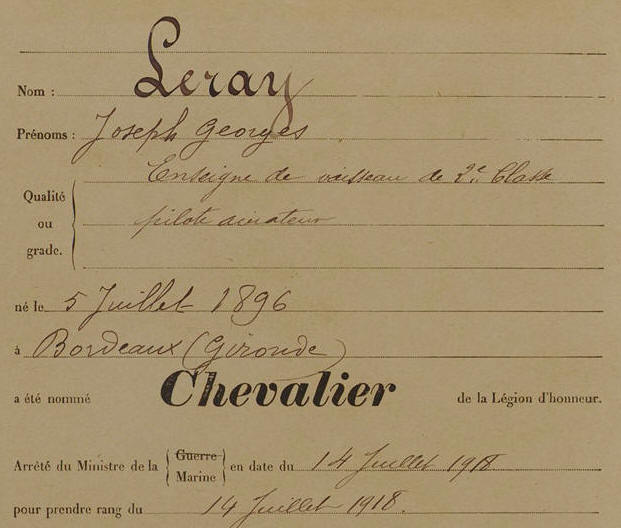 Nom : Leray
Prénoms : Joseph Georges
Qualité ou grade. Enseigne de vaisseau de 2e Classe
pilote aviateur
né le 5 Juillet 1896
à Bordeaux (Gironde)
a été nommé Chevalier de la Légion d'honneur.
Arrêté du Ministre de la Guerre Marine en date du 14 Juillet 1918
pour prendre rang du 14 Juillet 1918.